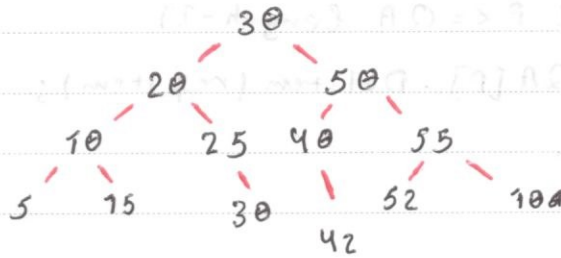 30
20 50
10 25 40 55
5 15 30 52 100
42